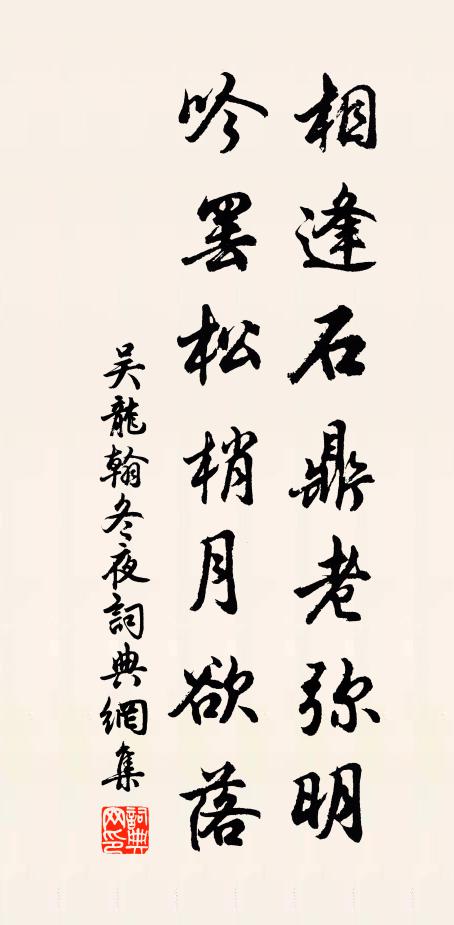 相逢石鼎老弥明
吟罢松梢月欲落
吴龍翰冬夜詞典網集
詞典网印